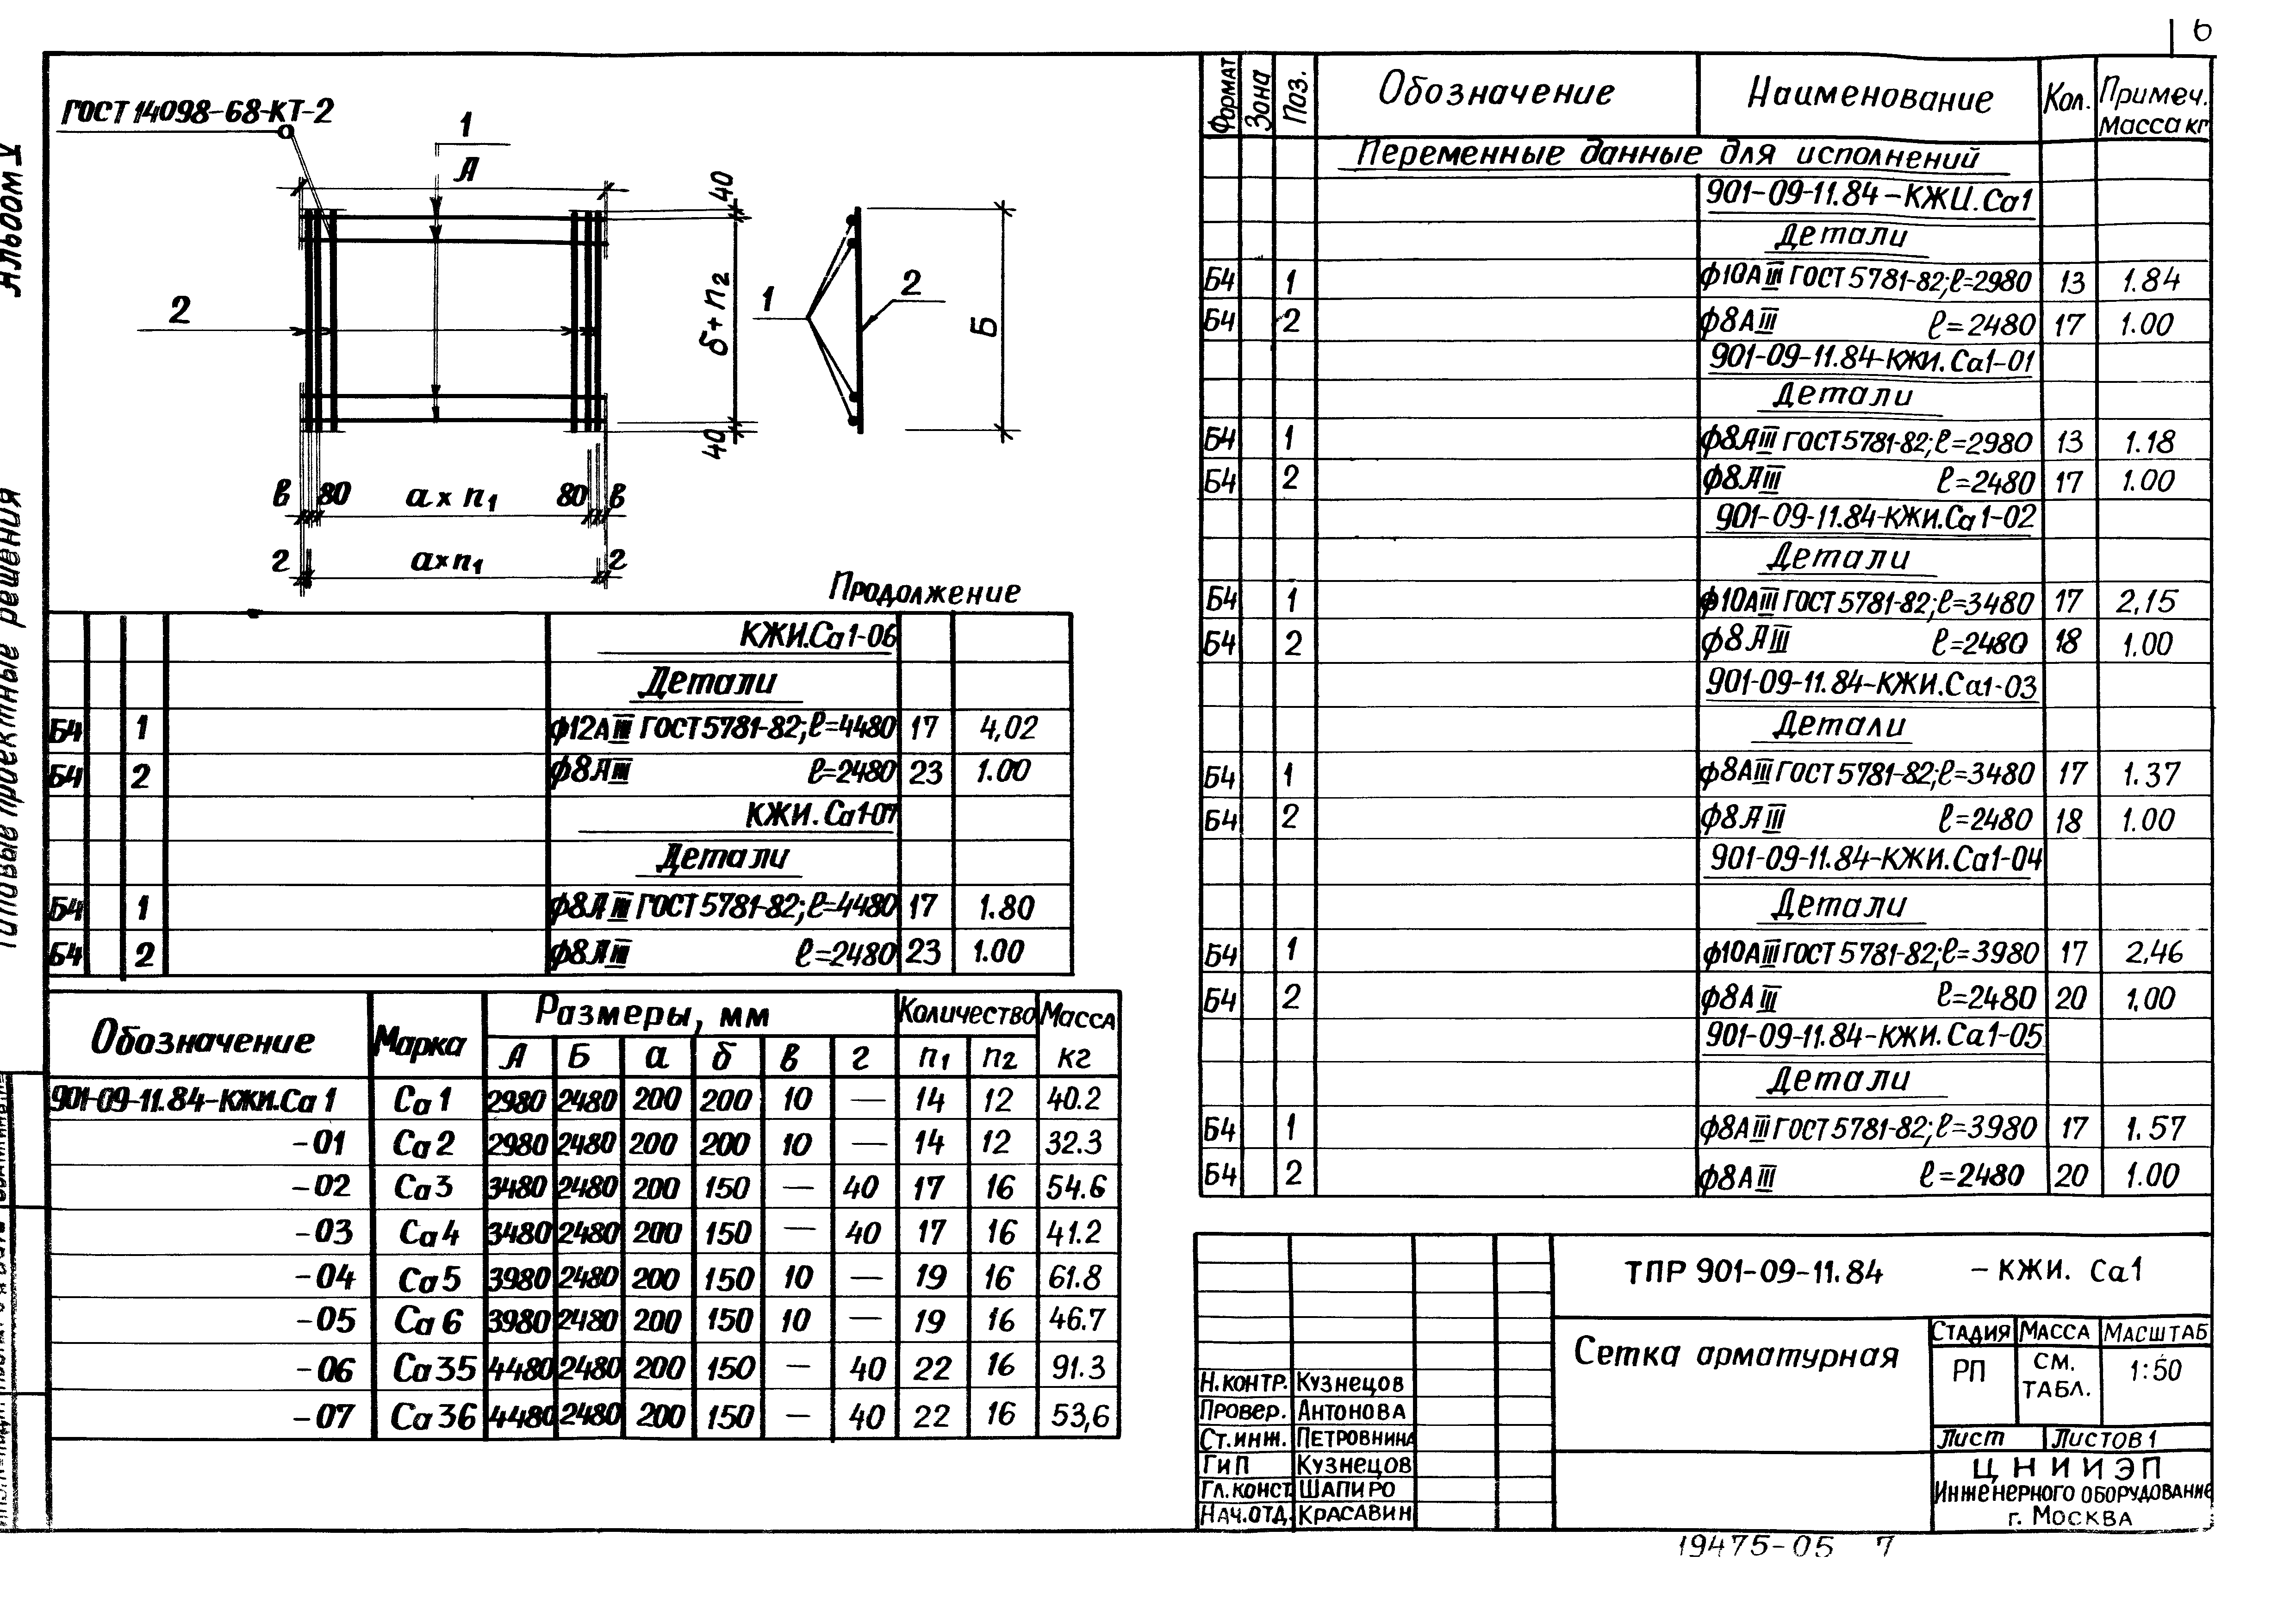 6
Альбом V
Типовые проектные решения
ГОСТ 14098-68-КТ-2
1
А
2
40
б+п2
40
1
2
Б
в 80 а х п1 80 в
г ахп1 г
Продолжение
КЖИ.Са1-06
Детали
Б4 1 ф12АIII ГОСТ 5781-82; ℓ=4480 17 4,02
Б4 2 ф8АIII ℓ=2480 23 1.00
КЖИ.Са1-07
Детали
Б4 1 ф8АIII ГОСТ 5781-82; ℓ=4480 17 1.80
Б4 2 ф8АIII ℓ=2480 23 1.00
Обозначение Марка Размеры, мм Количество Масса кг
А Б а б в г п1 п2
901-09-11.84-КЖИ.Са1 Са1 2980 2480 200 200 10 — 14 12 40.2
-01 Са2 2980 2480 200 200 10 — 14 12 32.3
-02 Са3 3480 2480 200 150 — 40 17 16 54.6
-03 Са4 3480 2480 200 150 — 40 17 16 41.2
-04 Са5 3980 2480 200 150 10 — 19 16 61.8
-05 Са6 3980 2480 200 150 10 — 19 16 46.7
-06 Са35 4480 2480 200 150 — 40 22 16 91.3
-07 Са36 4480 2480 200 150 — 40 22 16 53,6
Формат Зона Поз. Обозначение Наименование Кол. Примеч. Масса кг
Переменные данные для исполнений
901-09-11.84-КЖИ.Са1
Детали
Б4 1 ф10АIII ГОСТ 5781-82; ℓ=2980 13 1.84
Б4 2 ф8АIII ℓ=2480 17 1.00
901-09-11.84-КЖИ.Са1-01
Детали
Б4 1 ф8АIII ГОСТ 5781-82; ℓ=2980 13 1.18
Б4 2 ф8АIII ℓ=2480 17 1.00
901-09-11.84-КЖИ.Са1-02
Детали
Б4 1 ф10АIII ГОСТ 5781-82; ℓ=3480 17 2,15
Б4 2 ф8АIII ℓ=2480 18 1.00
901-09-11.84-КЖИ.Са1-03
Детали
Б4 1 ф8АIII ГОСТ 5781-82; ℓ=3480 17 1.37
Б4 2 ф8АIII ℓ=2480 18 1.00
901-09-11.84-КЖИ.Са1-04
Детали
Б4 1 ф10АIII ГОСТ 5781-82; ℓ=3980 17 2,46
Б4 2 ф8АIII ℓ=2480 20 1,00
901-09-11.84-КЖИ.Са1-05
Детали
Б4 1 ф8АIII ГОСТ 5781-82; ℓ=3980 17 1.57
Б4 2 ф8АIII ℓ=2480 20 1.00
ТПР 901-09-11.84 -КЖИ. Са1
Сетка арматурная
Стадия Масса Масштаб
РП см. табл. 1:50
Лист Листов 1
ЦНИИЭП
Инженерного оборудование
г. Москва
Н.контр. Кузнецов
Провер. Антонова
Ст.инж. Петровнина
ГиП Кузнецов
Гл.конст. Шапиро
Нач.отд. Красавин
19475-05 7